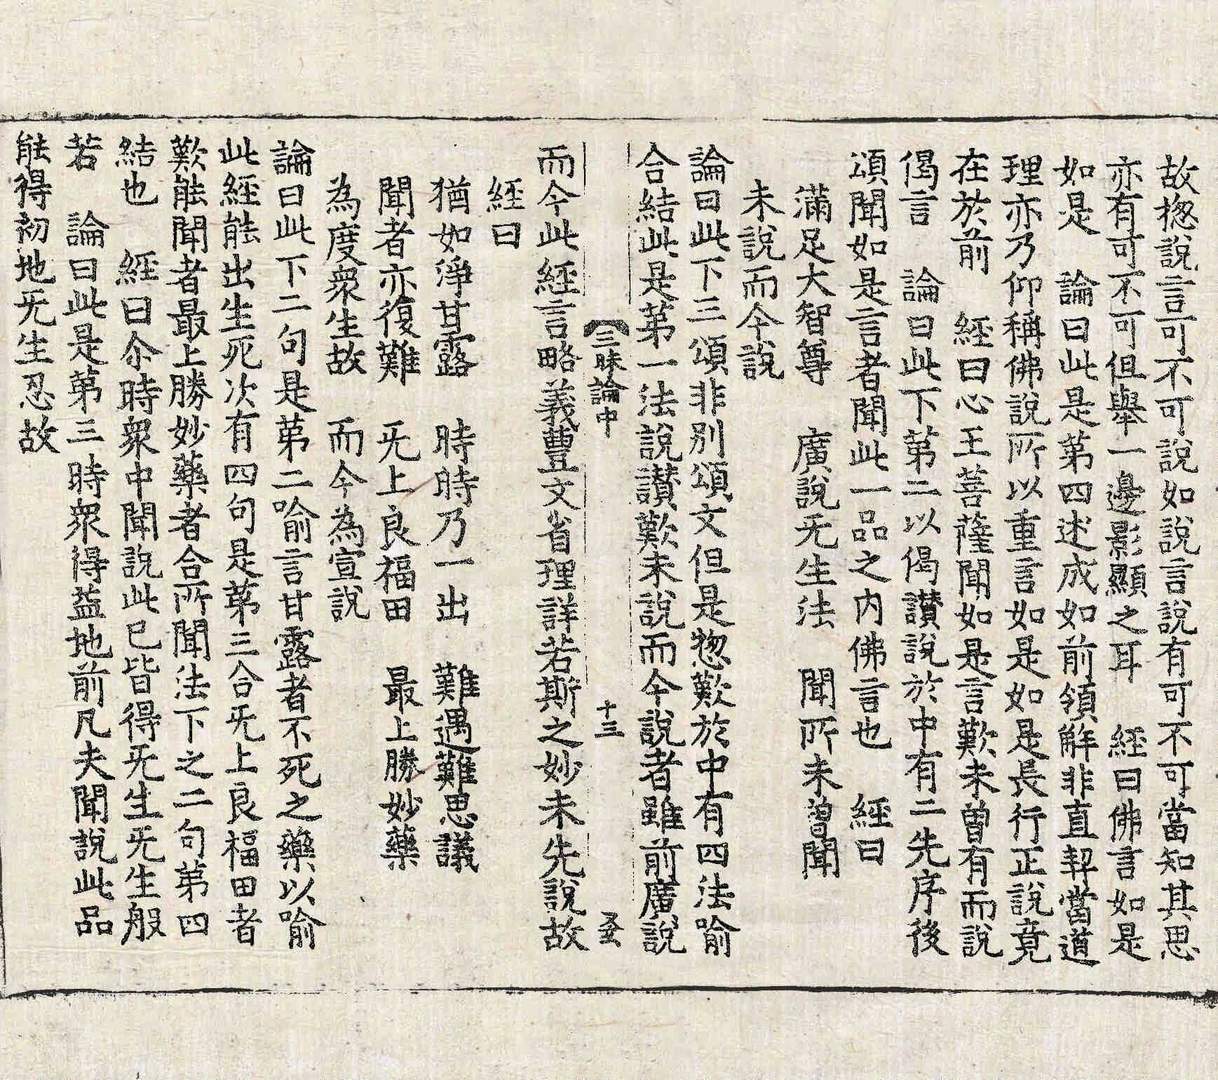 故揔說言可不可說如說言說有可不可當知其思
亦有可不可但舉一邊影顯之耳　經曰佛言如是
如是　論曰此是第四述成如前領解非直契當道
理亦乃仰稱佛說所以重言如是如是長行正說竟
在於前　經曰心王菩薩聞如是言歎未曾有而說
偈言　論曰此下第二以偈讃說於中有二先序後
頌聞如是言者聞此一品之內佛言也　經曰
滿足大智尊　廣說无生法　聞所未曾聞
未說而今說
論曰此下三頌非別頌文但是惣歎於中有四法喻
合結此是第一法說讃歎未說而今說者雖前廣說
三昧論中　十三
而今此經言略義豊文省理詳若斯之妙未先說故
經曰
猶如淨甘露　時時乃一出　難遇難思議
聞者亦復難　无上良福田　最上勝妙藥
為度衆生故　而今為宣說
論曰此下二句是第二喻言甘露者不死之藥以喻
此經能出生死次有四句是第三合无上良福田者
歎能聞者最上勝妙藥者合所聞法下之二句第四
結也　經曰尒時衆中聞說此已皆得无生无生般
若　論曰此是第三時衆得益地前凡夫聞說此品
能得初地无生忍故